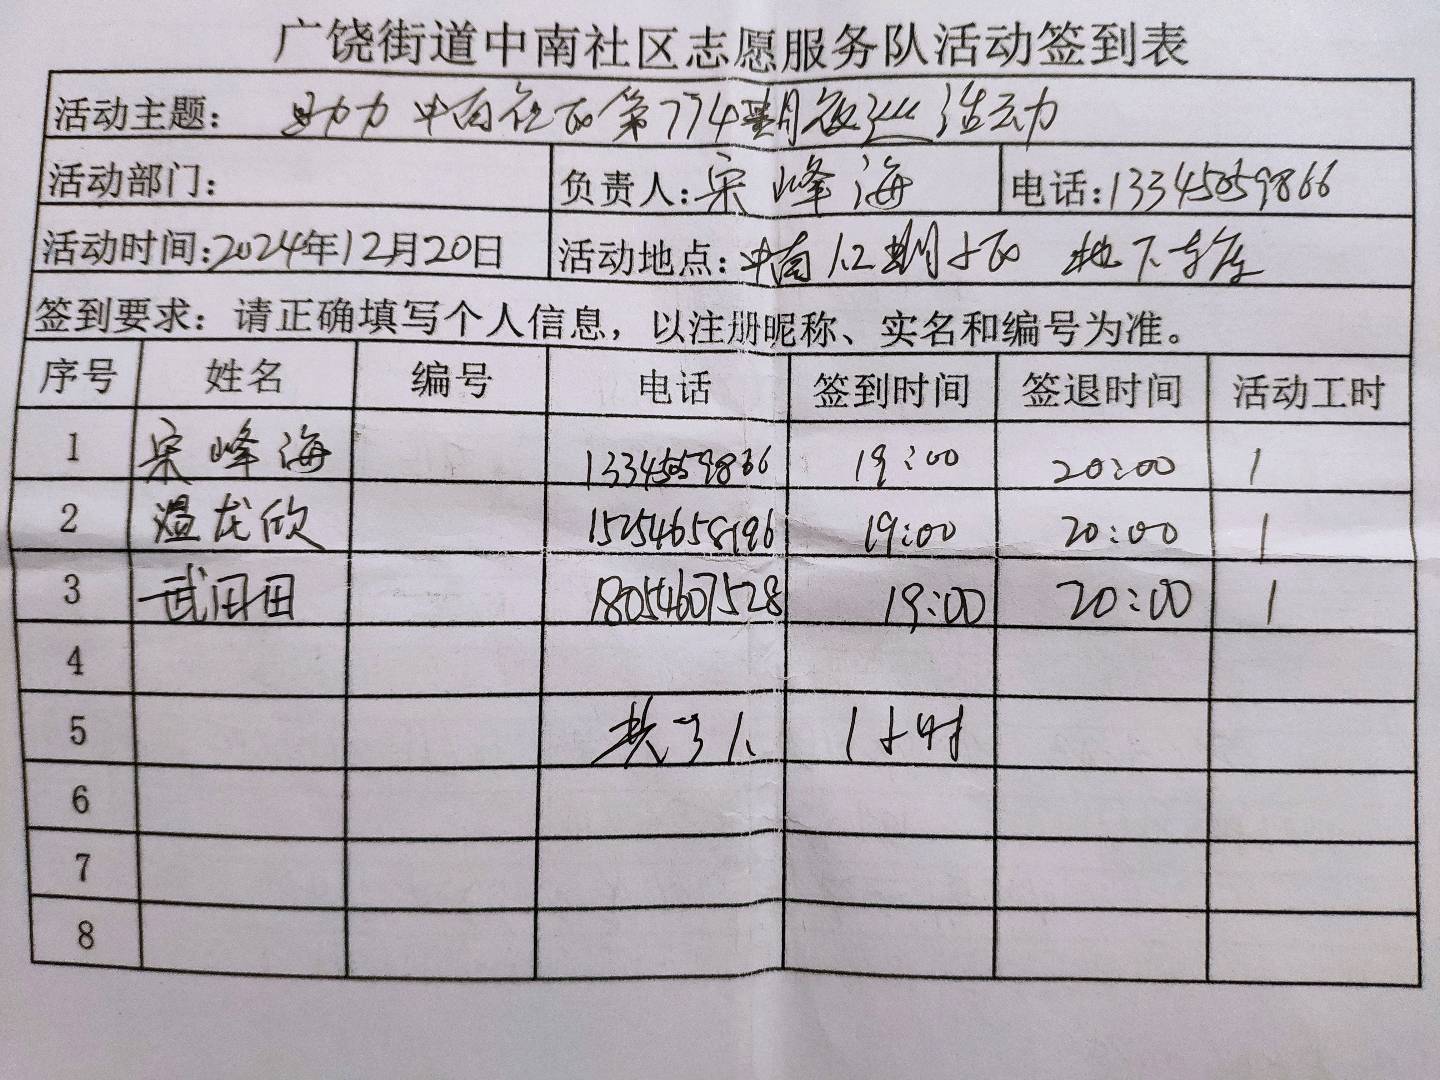 广饶街道中南社区志愿服务队活动签到表
活动主题: 助力中南社区第774期夜巡活动
活动部门:
负责人:宋峰海
电话:13345059866
活动时间:2024年12月20日
活动地点:中南1.2期小区 地下车库
签到要求: 请正确填写个人信息, 以注册昵称、实名和编号为准。
序号 姓名 编号 电话 签到时间 签退时间 活动工时
1 宋峰海 13345059866 19:00 20:00 1
2 温龙欣 19:00 20:00 1
3 武田田 18054607528 19:00 20:00 1
4
5 共3人 1小时
6
7
8